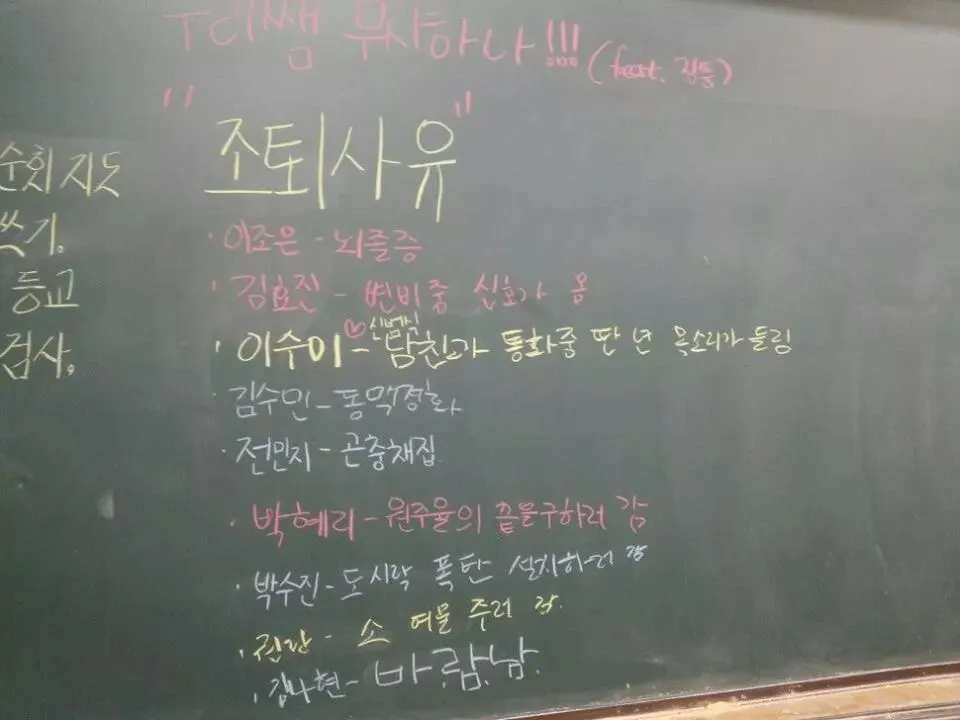 우리쌤 무사하나!!! (feat. 진통)
"조퇴사유"
순회지도
쓰기.
등교
검사.
· 이조은 - 뇌졸증
· 김효진 - 변비중 신호가 옴
· 이수이 - ♡신베식 남친과 통화중 딴 년 목소리가 들림
· 김수민 - 동맥경화
· 전민지 - 곤충채집
· 박혜리 - 원주율의 끝을구하러 감
· 박수진 - 도시락 폭탄 설치하러 감
· - 소 여물 주러 감.
· 김나현 - 바.람.남.